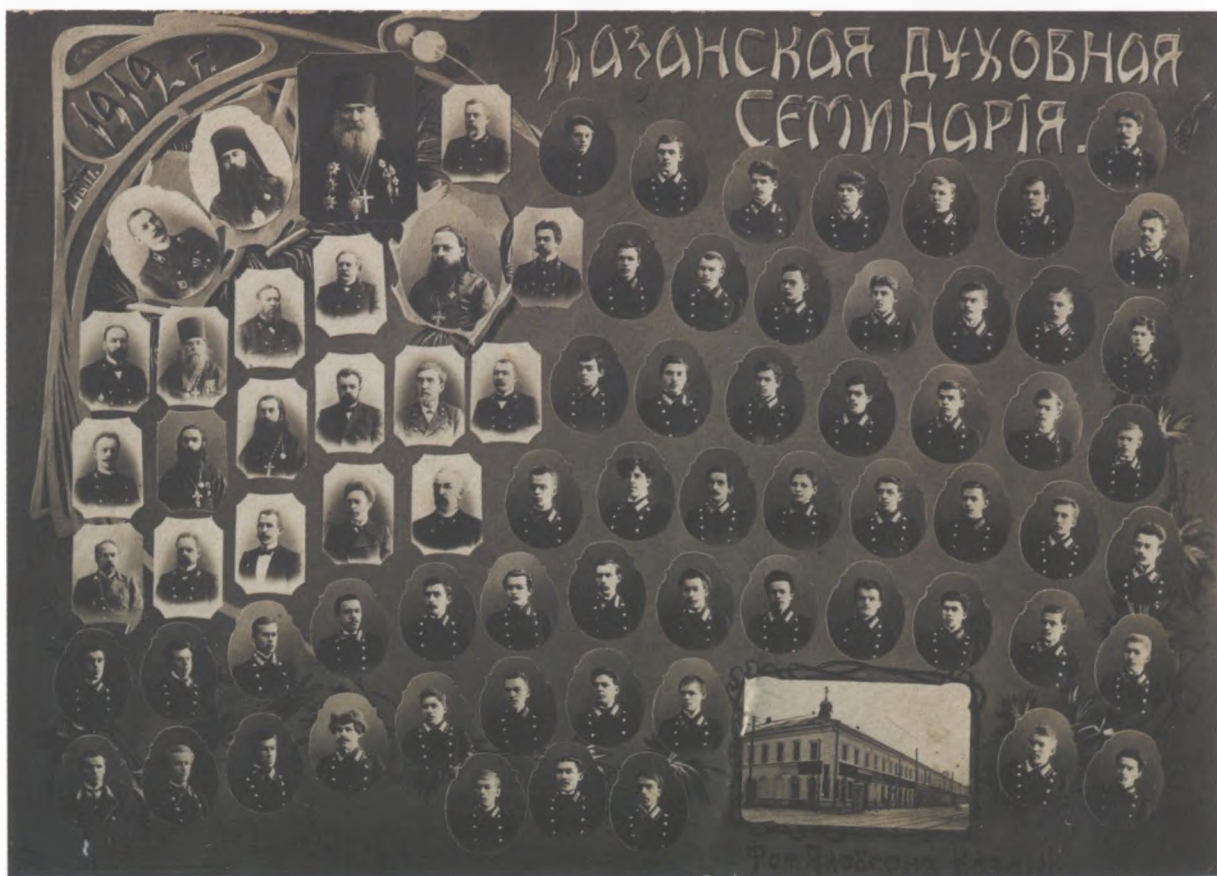 1912 г.
Казанская духовная
Семинарія.
Фот. Якобсонъ Казань